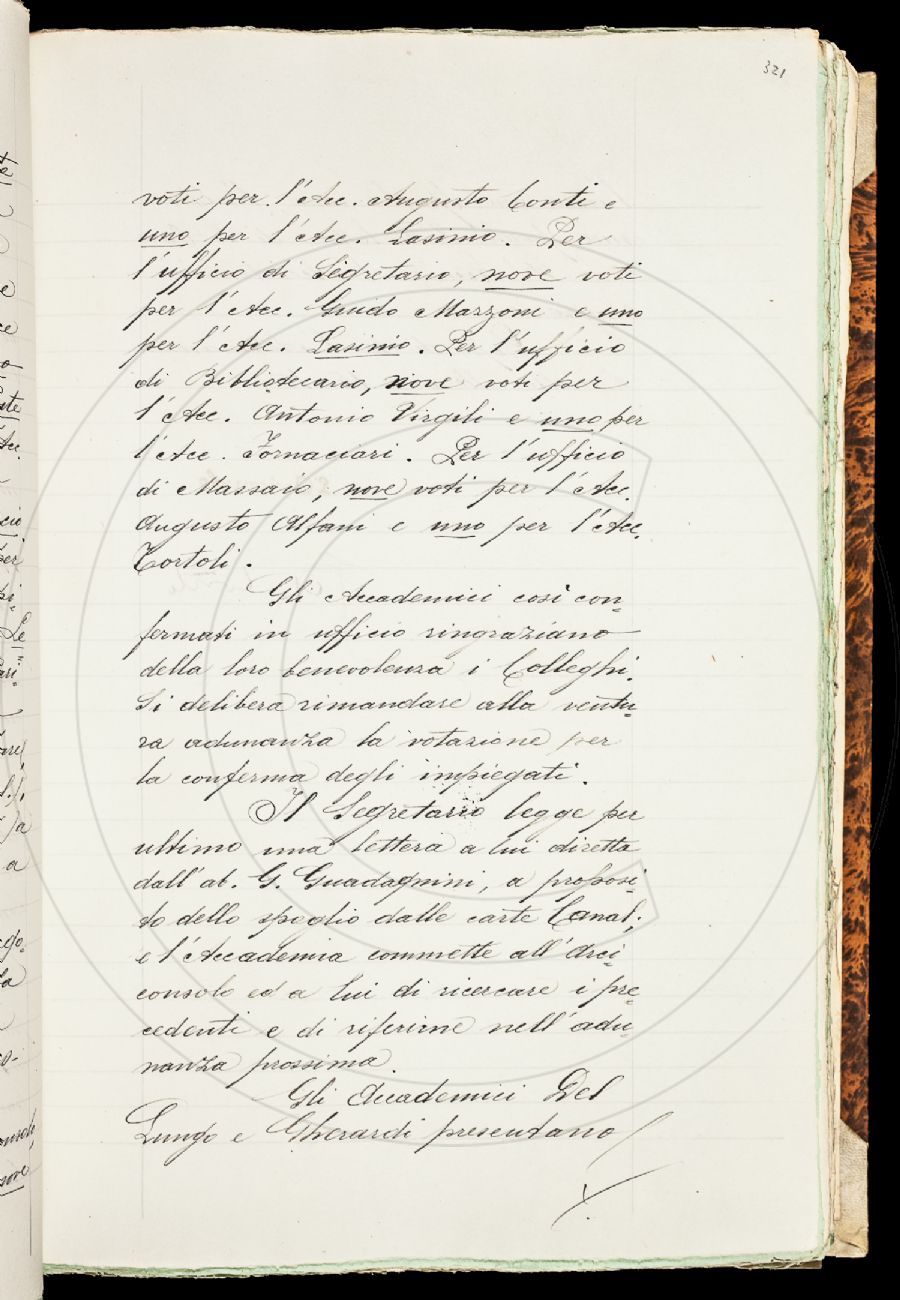 321
voti per l'Acc. Augusto Conti e
uno per l'Acc. Lasinio. Per
l'ufficio di Segretario, nove voti
per l'Acc. Guido Mazzoni e uno
per l'Acc. Lasinio. Per l'ufficio
di Bibliotecario, nove voti per
l'Acc. Antonio Virgili e uno per
l'Acc. Fornaciari. Per l'ufficio
di Massaio, nove voti per l'Acc.
Augusto Alfani e uno per l'Acc.
Tortoli.
Gli Accademici così con-
fermati in ufficio ringraziano
della loro benevolenza i Colleghi.
Si delibera rimandare alla ventu-
ra adunanza la votazione per
la conferma degli impiegati.
Il Segretario legge per
ultimo una lettera a lui diretta
dall'ab. G. Guadagnini, a proposi-
to dello spoglio dalle carte Canal;
e l'Accademia commette all'Arci-
consolo ed a lui di ricercare i pre-
cedenti e di riferirne nell'adu-
nanza prossima.
Gli Accademici Del
Lungo e Gherardi presentano